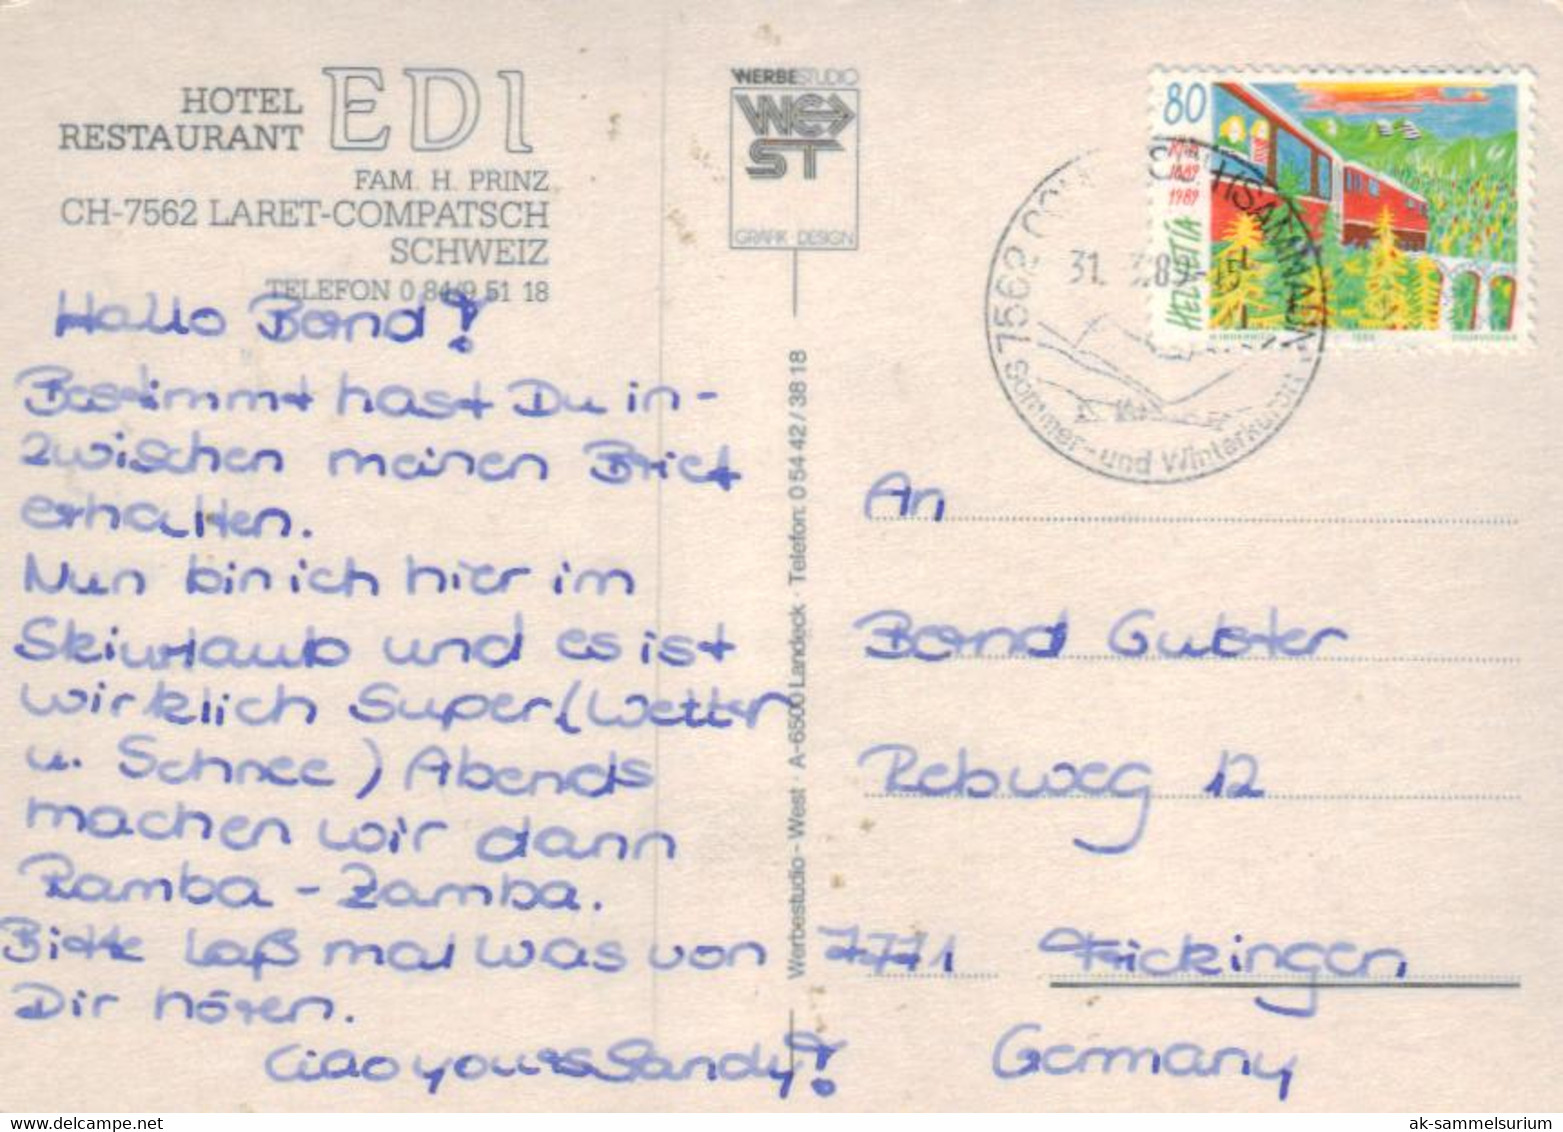 HOTEL EDI
RESTAURANT
FAM. H. PRINZ
CH-7562 LARET-COMPATSCH
SCHWEIZ
TELEFON 0 84/9 51 18
Hallo Bernd!
Bestimmt hast Du in-
zwischen meinen Brief
erhalten.
Nun bin ich hier im
Skiurlaub und es ist
wirklich Super (Wetter
u. Schnee) Abends
machen wir dann
Ramba-Zamba.
Bitte laß mal was von
Dir hören.
Ciao yours Sandy!
WERBESTUDIO
WEST
GRAFIK DESIGN
Werbestudio - West · A-6500 Landeck · Telefon: 0 54 42 / 38 18
80
1889
1989
HELVETIA
7562 SAMNAUN
31. 3.89
Sommer- und Winterkurort
An
Bernd Gubter
Rebweg 12
7771 Frickingen
Germany
ak-sammelsurium